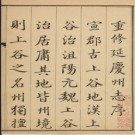 重修延慶州志序
宣郡古上谷地漢上
谷治沮陽元魏上谷
治居庸其地皆州境
則上谷之名州獨擅